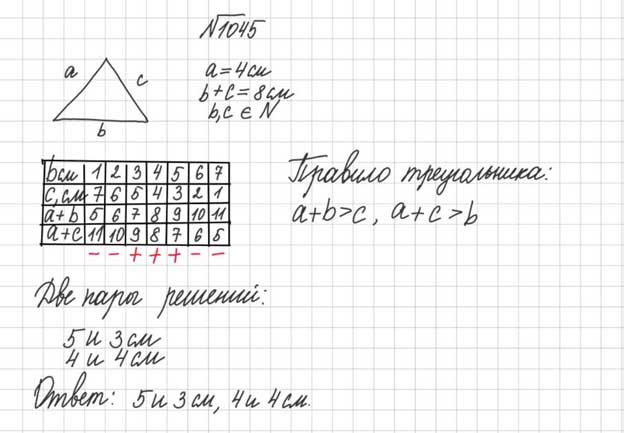 №1045
a
c
b
a=4см
b+c=8см
b,c ∈ N
b см 1 2 3 4 5 6 7
c, см 7 6 5 4 3 2 1
a+b 5 6 7 8 9 10 11
a+c 11 10 9 8 7 6 5
- - + + + - -
Правило треугольника:
a+b>c, a+c>b
Две пары решений:
5 и 3 см
4 и 4 см
Ответ: 5 и 3 см, 4 и 4 см.